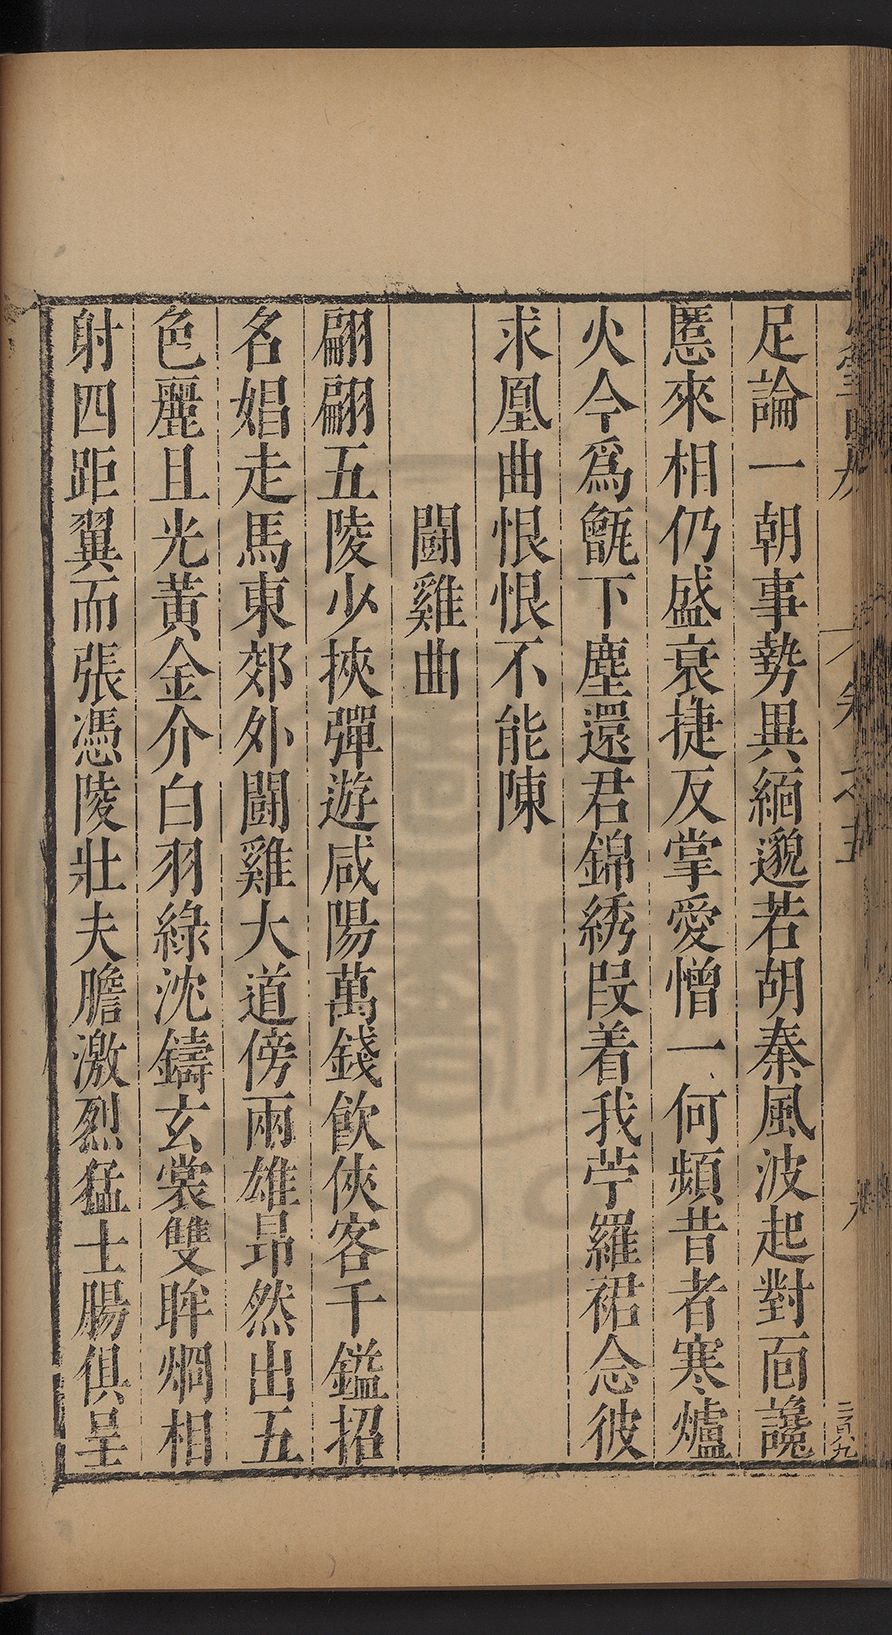 足論一朝事勢異緬邈若胡秦風波起對面讒
慝來相仍盛衰捷反掌愛憎一何頻昔者寒爐
火今爲甑下塵還君錦綉段着我苧羅裙念彼
求凰曲恨恨不能陳
鬪雞曲
翩翩五陵少挾彈遊咸陽萬錢飲俠客千鎰招
名娼走馬東郊外鬪雞大道傍兩雄昂然出五
色麗且光黃金介白羽綠沈鑄玄裳雙眸烱相
射四距翼而張憑陵壯夫膽激烈猛士腸俱呈